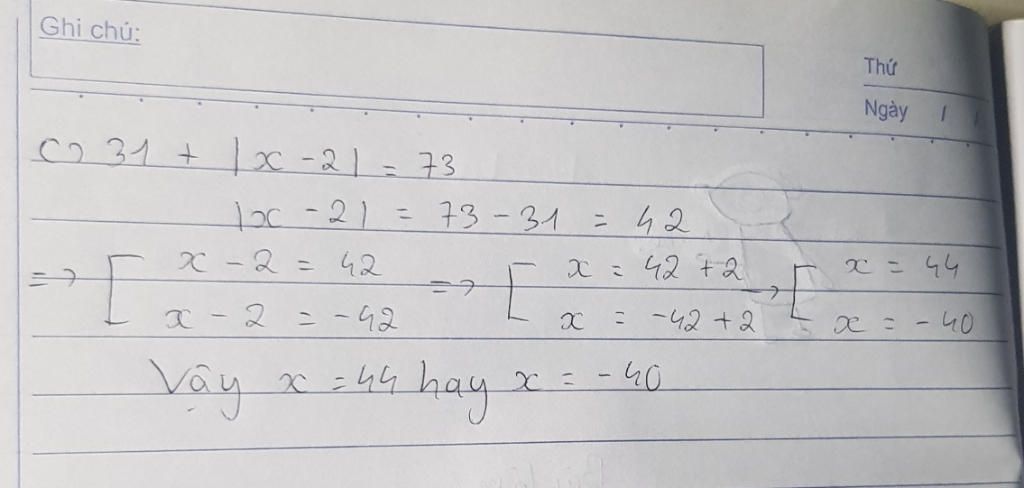 Ghi chú:
Thứ
Ngày / /
c) 31 + |x - 2| = 73
|x - 2| = 73 - 31 = 42
=> [ x - 2 = 42 => [ x = 42 + 2 → [ x = 44
x - 2 = -42 x = -42 + 2 x = -40
Vậy x = 44 hay x = -40